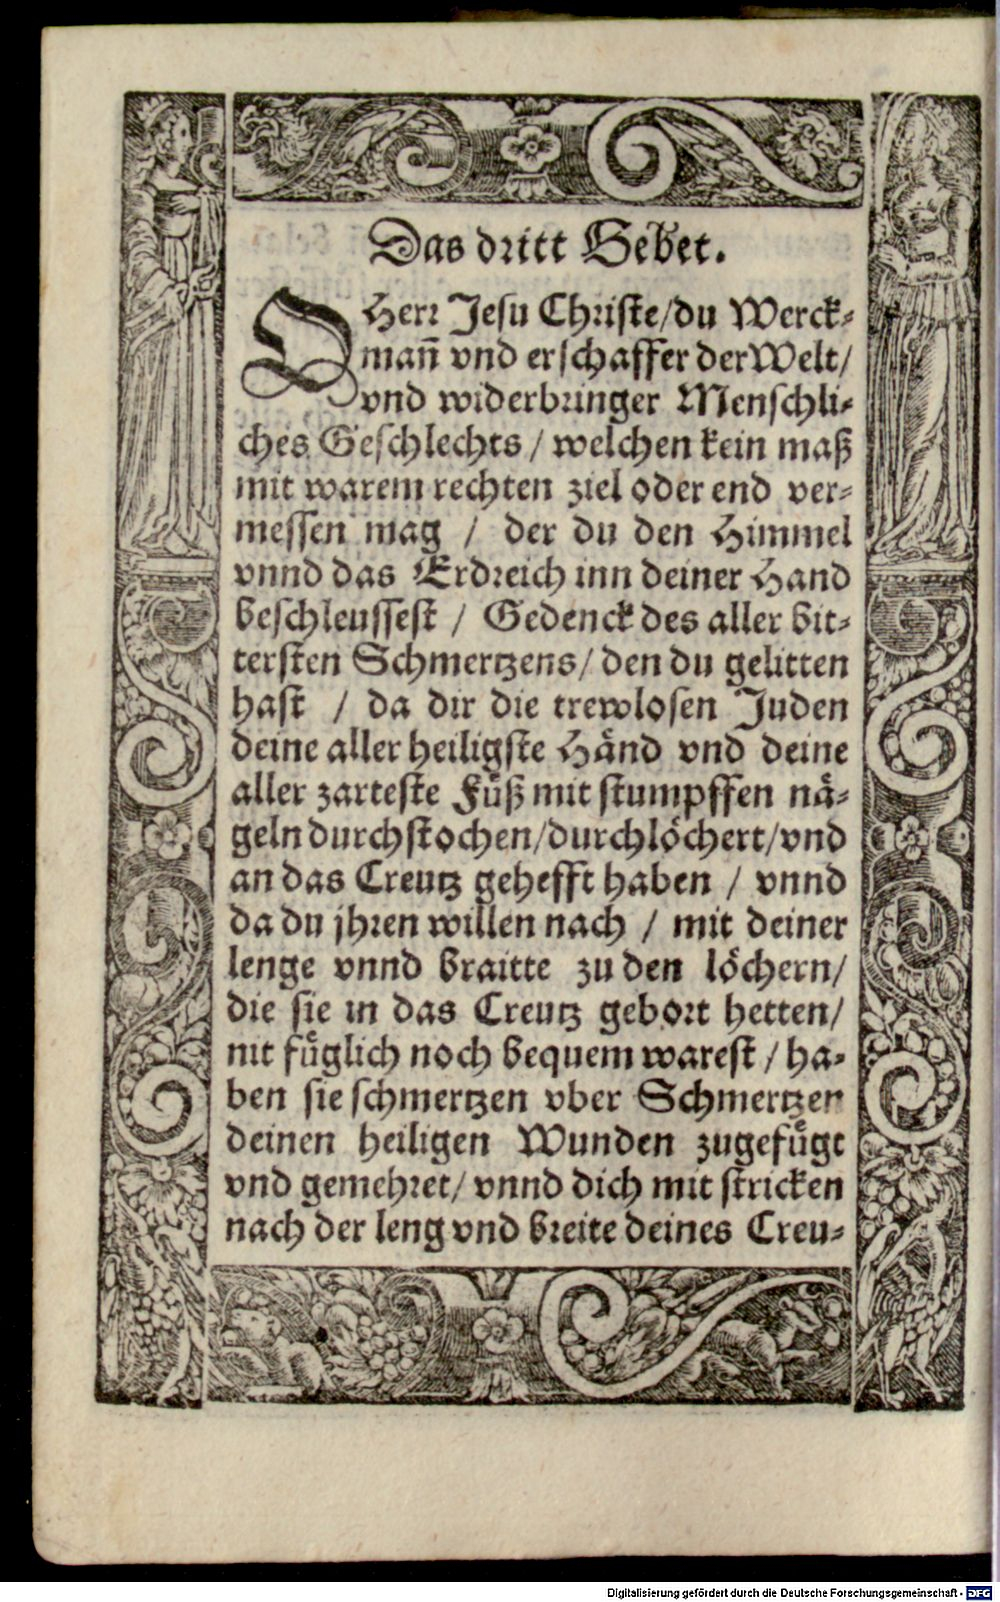 Das dritt Gebet.
O Herr Jesu Christe/du Werck-
mañ vnd erschaffer der Welt/
vnd widerbringer Menschli-
ches Geschlechts / welchen kein maß
mit warem rechten ziel oder end ver-
messen mag / der du den Himmel
vnnd das Erdreich inn deiner Hand
beschleussest / Gedenck des aller bit-
tersten Schmertzens/ den du gelitten
hast / da dir die trewlosen Juden
deine aller heiligste Hånd vnd deine
aller zarteste Fůß mit stumpffen nå-
geln durchstochen/durchlöchert/vnd
an das Creutz gehefft haben / vnnd
da du jhren willen nach / mit deiner
lenge vnnd braitte zu den löchern/
die sie in das Creutz gebort hetten/
nit fůglich noch bequem warest / ha-
ben sie schmertzen vber Schmertzen
deinen heiligen Wunden zugefůgt
vnd gemehret/ vnnd dich mit stricken
nach der leng vnd breite deines Creu-
Digitalisierung gefördert durch die Deutsche Forschungsgemeinschaft - DFG